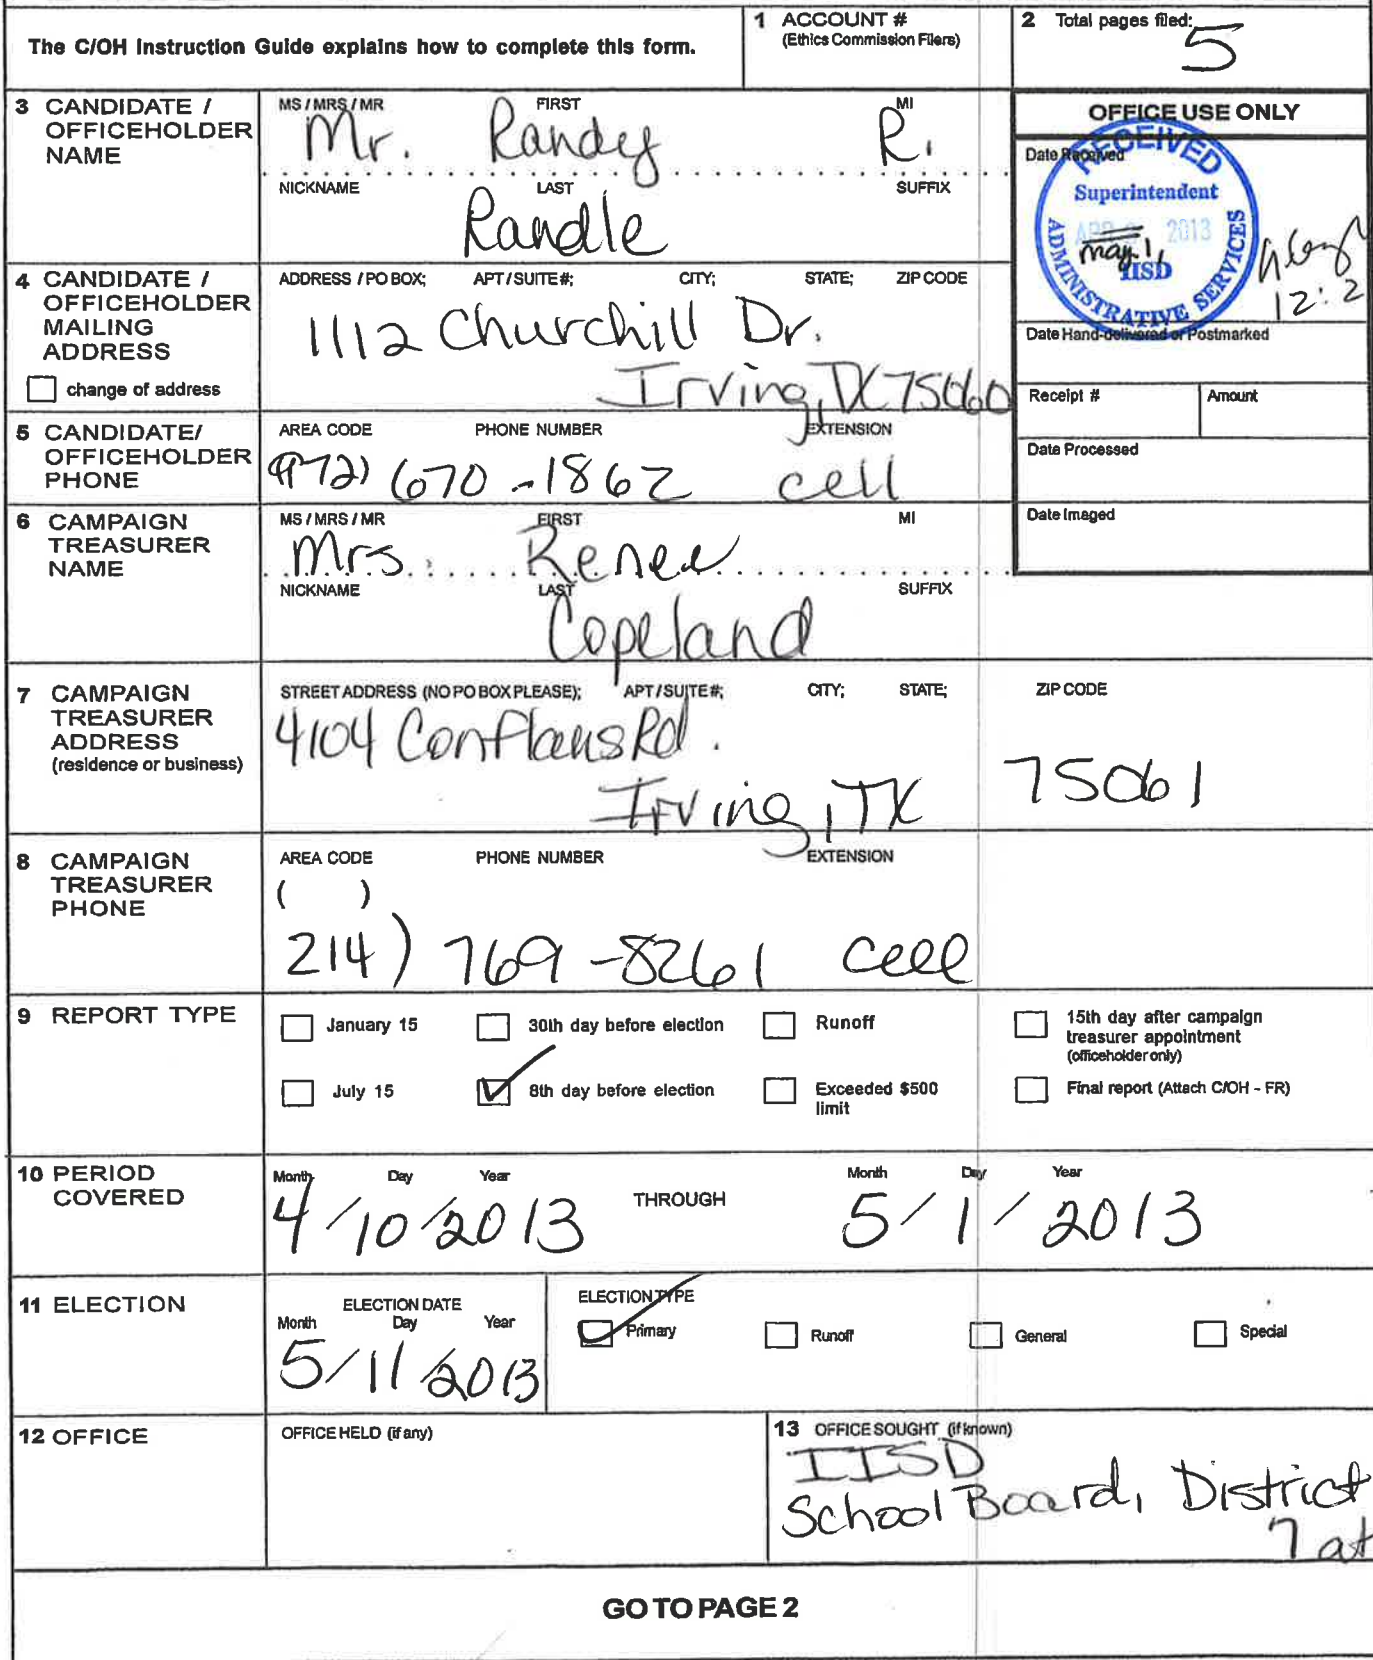 The C/OH Instruction Guide explains how to complete this form.
1 ACCOUNT #
(Ethics Commission Filers)
2 Total pages filed:
5
3 CANDIDATE /
OFFICEHOLDER
NAME
MS / MRS / MR FIRST MI
Mr. Randy R.
NICKNAME LAST SUFFIX
Randle
OFFICE USE ONLY
Date Received
RECEIVED
Superintendent
2013
May 1,
IISD
ADMINISTRATIVE SERVICES
12:2
Date Hand-delivered or Postmarked
Receipt # Amount
Date Processed
Date Imaged
4 CANDIDATE /
OFFICEHOLDER
MAILING
ADDRESS
change of address
ADDRESS / PO BOX; APT / SUITE #; CITY; STATE; ZIP CODE
1112 Churchill Dr.
Irving, TX 75060
5 CANDIDATE/
OFFICEHOLDER
PHONE
AREA CODE PHONE NUMBER EXTENSION
(972) 670-1862 cell
6 CAMPAIGN
TREASURER
NAME
MS / MRS / MR FIRST MI
Mrs. Renee
NICKNAME LAST SUFFIX
Copeland
7 CAMPAIGN
TREASURER
ADDRESS
(residence or business)
STREET ADDRESS (NO PO BOX PLEASE); APT / SUITE #; CITY; STATE; ZIP CODE
4104 Conflans Rd.
Irving, TX 75061
8 CAMPAIGN
TREASURER
PHONE
AREA CODE PHONE NUMBER EXTENSION
( )
214) 769-8261 cell
9 REPORT TYPE
January 15 30th day before election Runoff 15th day after campaign
treasurer appointment
(officeholder only)
July 15 8th day before election Exceeded $500
limit
Final report (Attach C/OH - FR)
10 PERIOD
COVERED
Month Day Year Month Day Year
4/10/2013 THROUGH 5/1/2013
11 ELECTION
ELECTION DATE
Month Day Year
5/11/2013
ELECTION TYPE
Primary Runoff General Special
12 OFFICE
OFFICE HELD (if any)
13 OFFICE SOUGHT (if known)
IISD
School Board, District
7 at
GO TO PAGE 2